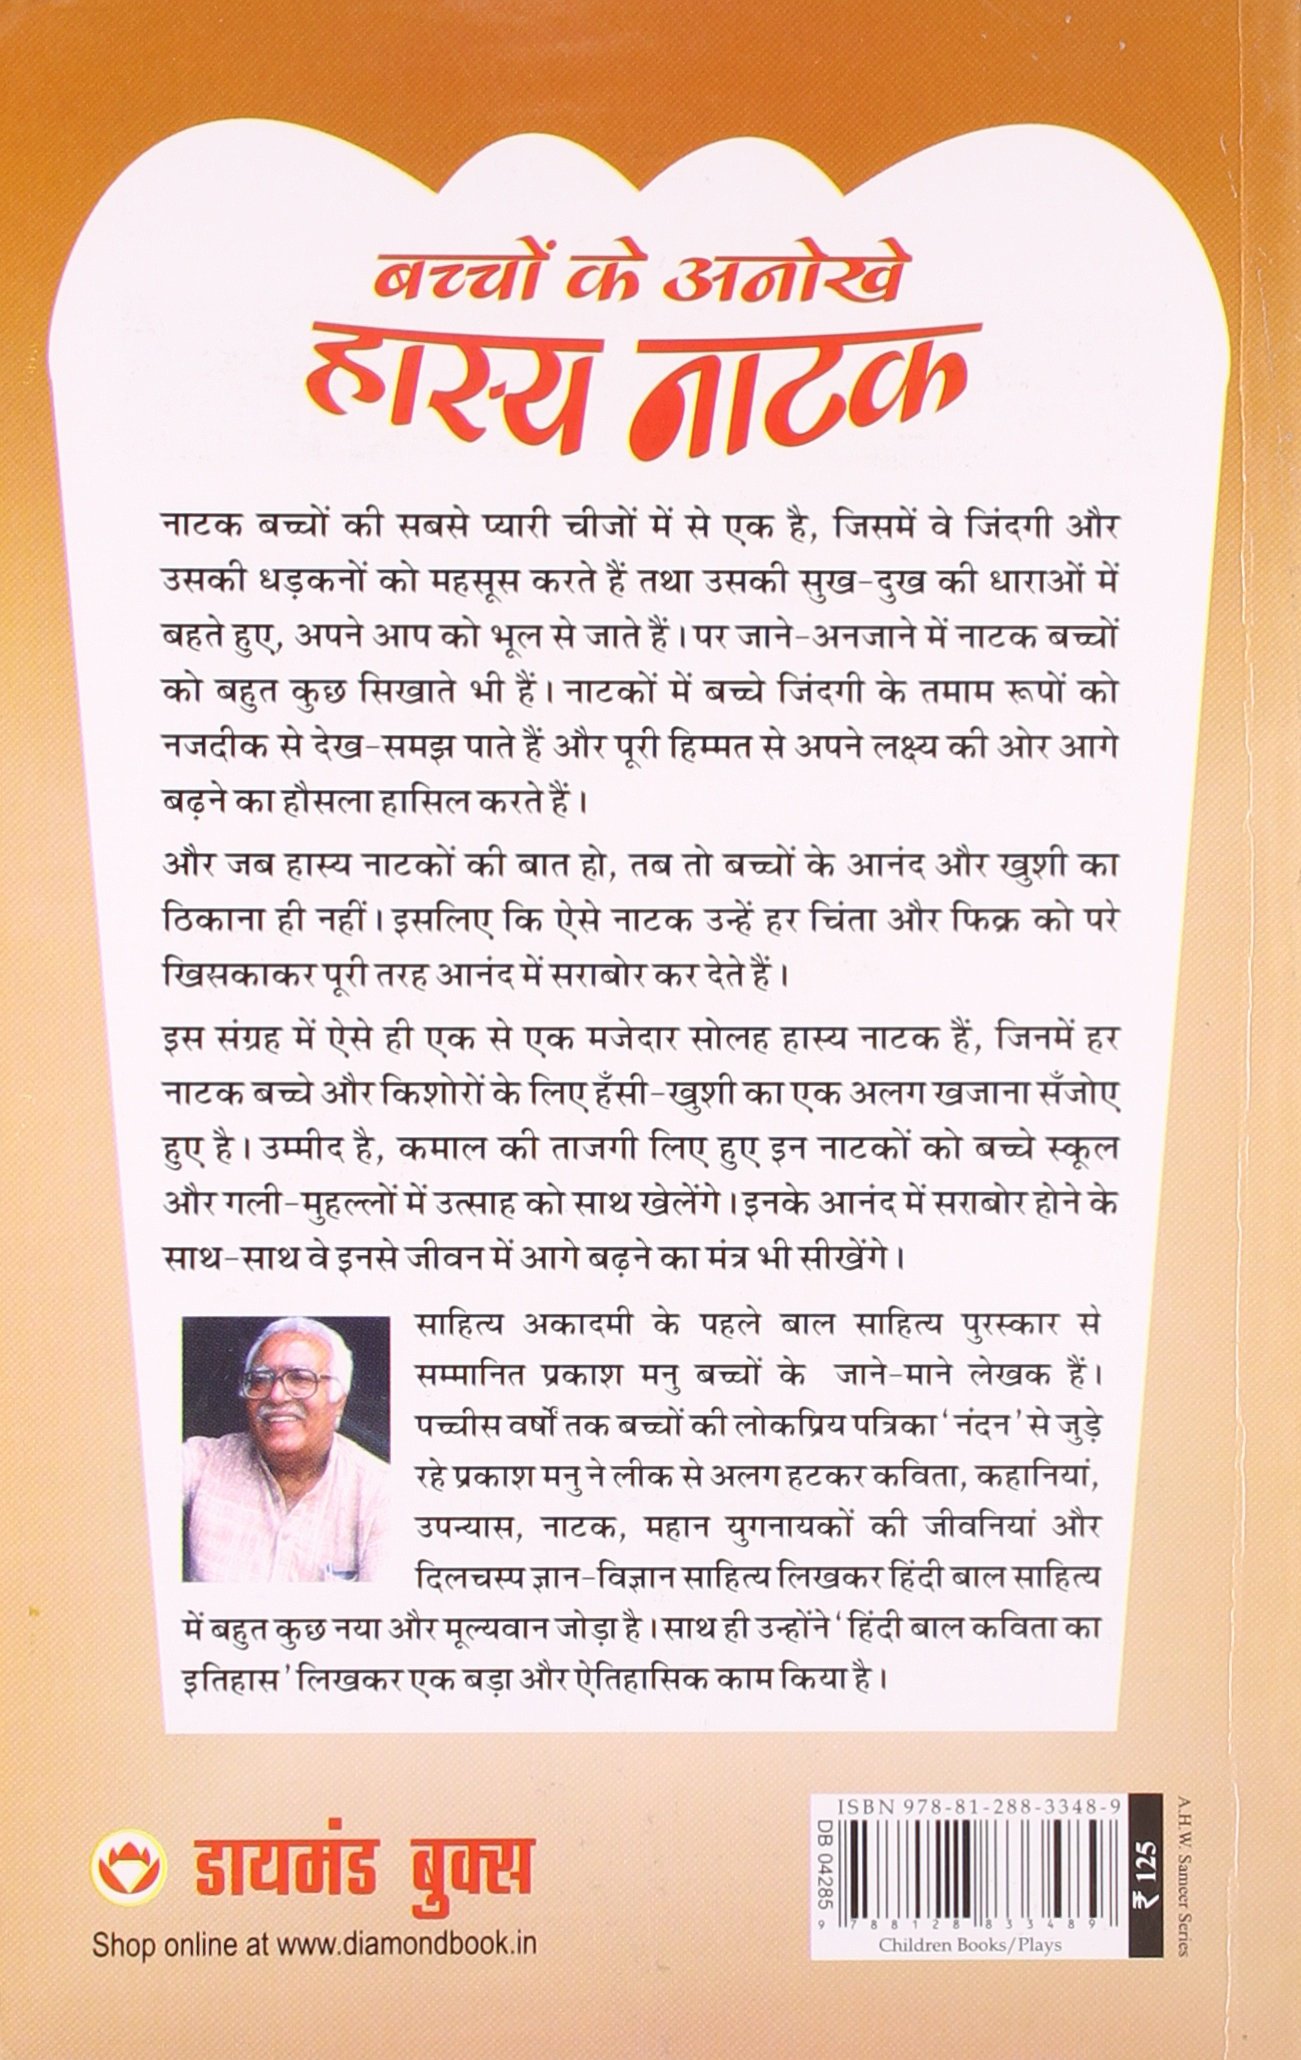 बच्चों के अनोखे
हास्य नाटक
नाटक बच्चों की सबसे प्यारी चीजों में से एक है, जिसमें वे जिंदगी और
उसकी धड़कनों को महसूस करते हैं तथा उसकी सुख-दुख की धाराओं में
बहते हुए, अपने आप को भूल से जाते हैं। पर जाने-अनजाने में नाटक बच्चों
को बहुत कुछ सिखाते भी हैं। नाटकों में बच्चे जिंदगी के तमाम रूपों को
नजदीक से देख-समझ पाते हैं और पूरी हिम्मत से अपने लक्ष्य की ओर आगे
बढ़ने का हौसला हासिल करते हैं।
और जब हास्य नाटकों की बात हो, तब तो बच्चों के आनंद और खुशी का
ठिकाना ही नहीं। इसलिए कि ऐसे नाटक उन्हें हर चिंता और फिक्र को परे
खिसकाकर पूरी तरह आनंद में सराबोर कर देते हैं।
इस संग्रह में ऐसे ही एक से एक मजेदार सोलह हास्य नाटक हैं, जिनमें हर
नाटक बच्चे और किशोरों के लिए हँसी-खुशी का एक अलग खजाना सँजोए
हुए है। उम्मीद है, कमाल की ताजगी लिए हुए इन नाटकों को बच्चे स्कूल
और गली-मुहल्लों में उत्साह को साथ खेलेंगे। इनके आनंद में सराबोर होने के
साथ-साथ वे इनसे जीवन में आगे बढ़ने का मंत्र भी सीखेंगे।
साहित्य अकादमी के पहले बाल साहित्य पुरस्कार से
सम्मानित प्रकाश मनु बच्चों के जाने-माने लेखक हैं।
पच्चीस वर्षों तक बच्चों की लोकप्रिय पत्रिका 'नंदन' से जुड़े
रहे प्रकाश मनु ने लीक से अलग हटकर कविता, कहानियां,
उपन्यास, नाटक, महान युगनायकों की जीवनियां और
दिलचस्प ज्ञान-विज्ञान साहित्य लिखकर हिंदी बाल साहित्य
में बहुत कुछ नया और मूल्यवान जोड़ा है। साथ ही उन्होंने 'हिंदी बाल कविता का
इतिहास' लिखकर एक बड़ा और ऐतिहासिक काम किया है।
डायमंड बुक्स
Shop online at www.diamondbook.in
ISBN 978-81-288-3348-9
DB 04285
9 788128 833489
Children Books/Plays
₹ 125
A.H.W. Sameer Series